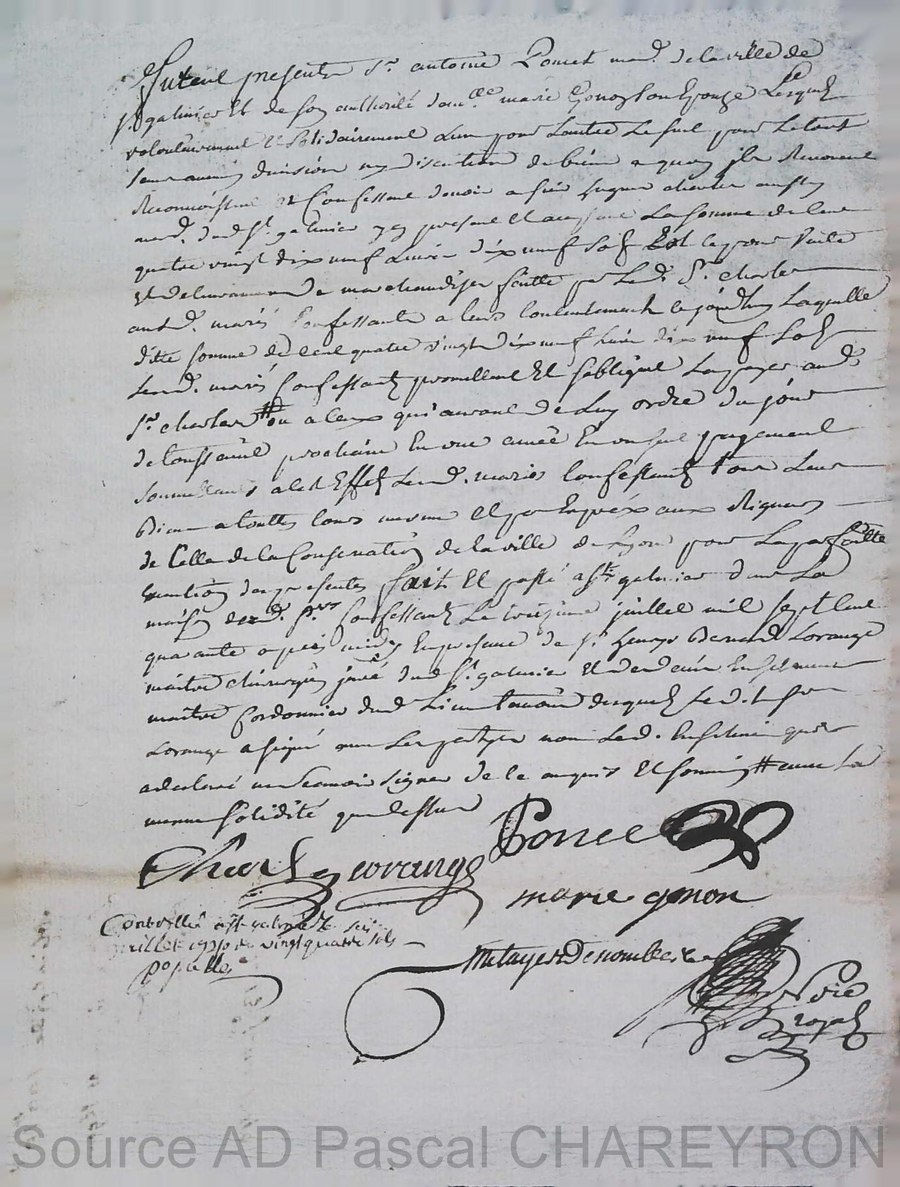 furent presents Sr. antoine Poncet mard. de la ville de
St galmier Et de son authorité damlle. marie Gonon son Epouze Lesquels
volontairement & solidairement L'un pour Lautre Le seul pour Le tout
sans aucune division ny discution de biens a quoy ils Renoncent
Reconnoissent Et Confessent devoir a sieur hugue charles
mard. dud. St. galmier icy present Et acceptant La somme de Cent
quatre vingt dix neuf Livres dix neuf sols Et ce pour vente
Et delivrance de marchandises faitte par Led. Sr. charles
auxd. mariés Confessants a leurs contentement ce jourdhuy Laquelle
ditte somme de cent quatre vingt dix neuf Livres dix neuf sols
Lesd. mariés Confessants promettent Et sobligent La payer aud.
Sr. charles # ou a ceux qui auront de Luy ordre du jour
de toussaint prochain En une année En un seul payement
soumettants a cet Effet Lesd. mariés Confessants tous Leurs
Biens a touttes Cours mesme Et par Exprés aux Rigueurs
de Celle de la Conservation de la ville de Lyon pour La parfaitte
des presentes fait Et passé a St. galmier dans La
maison desd. Confessants Le treizieme juillet mil sept Cent
quarante apres midy En presence de Sr. Benard Lorange
maitre chirurgien juré dud St. galmier Et de
maitre Cordonnier dud. Lieu temoins desquels Led. Sr
Lorange a signé avec Les partyes non Led. qui
a declaré ne scavoir signer de ce enquis Et sommé # avec La
meme solidité que dessus
Charles Lorange Poncet
marie gonon
Controllé a St galmier Le seize
juillet 1740 R. vingt quatre sols

Notre
royal